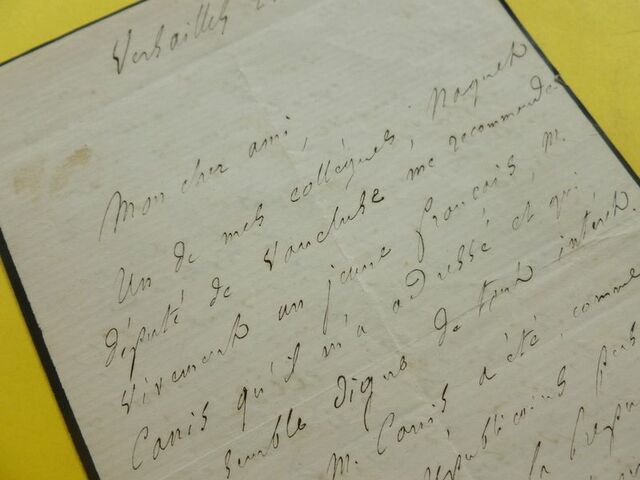 Versailles
Mon cher ami,
Un de mes collègues, Naquet
député de Vaucluse me recommande
vivement un jeune français, M.
Canis qu'il m'a adressé et qui
semble digne de tout intérêt.
M. Canis a été, comme
républicains pas
la Répu